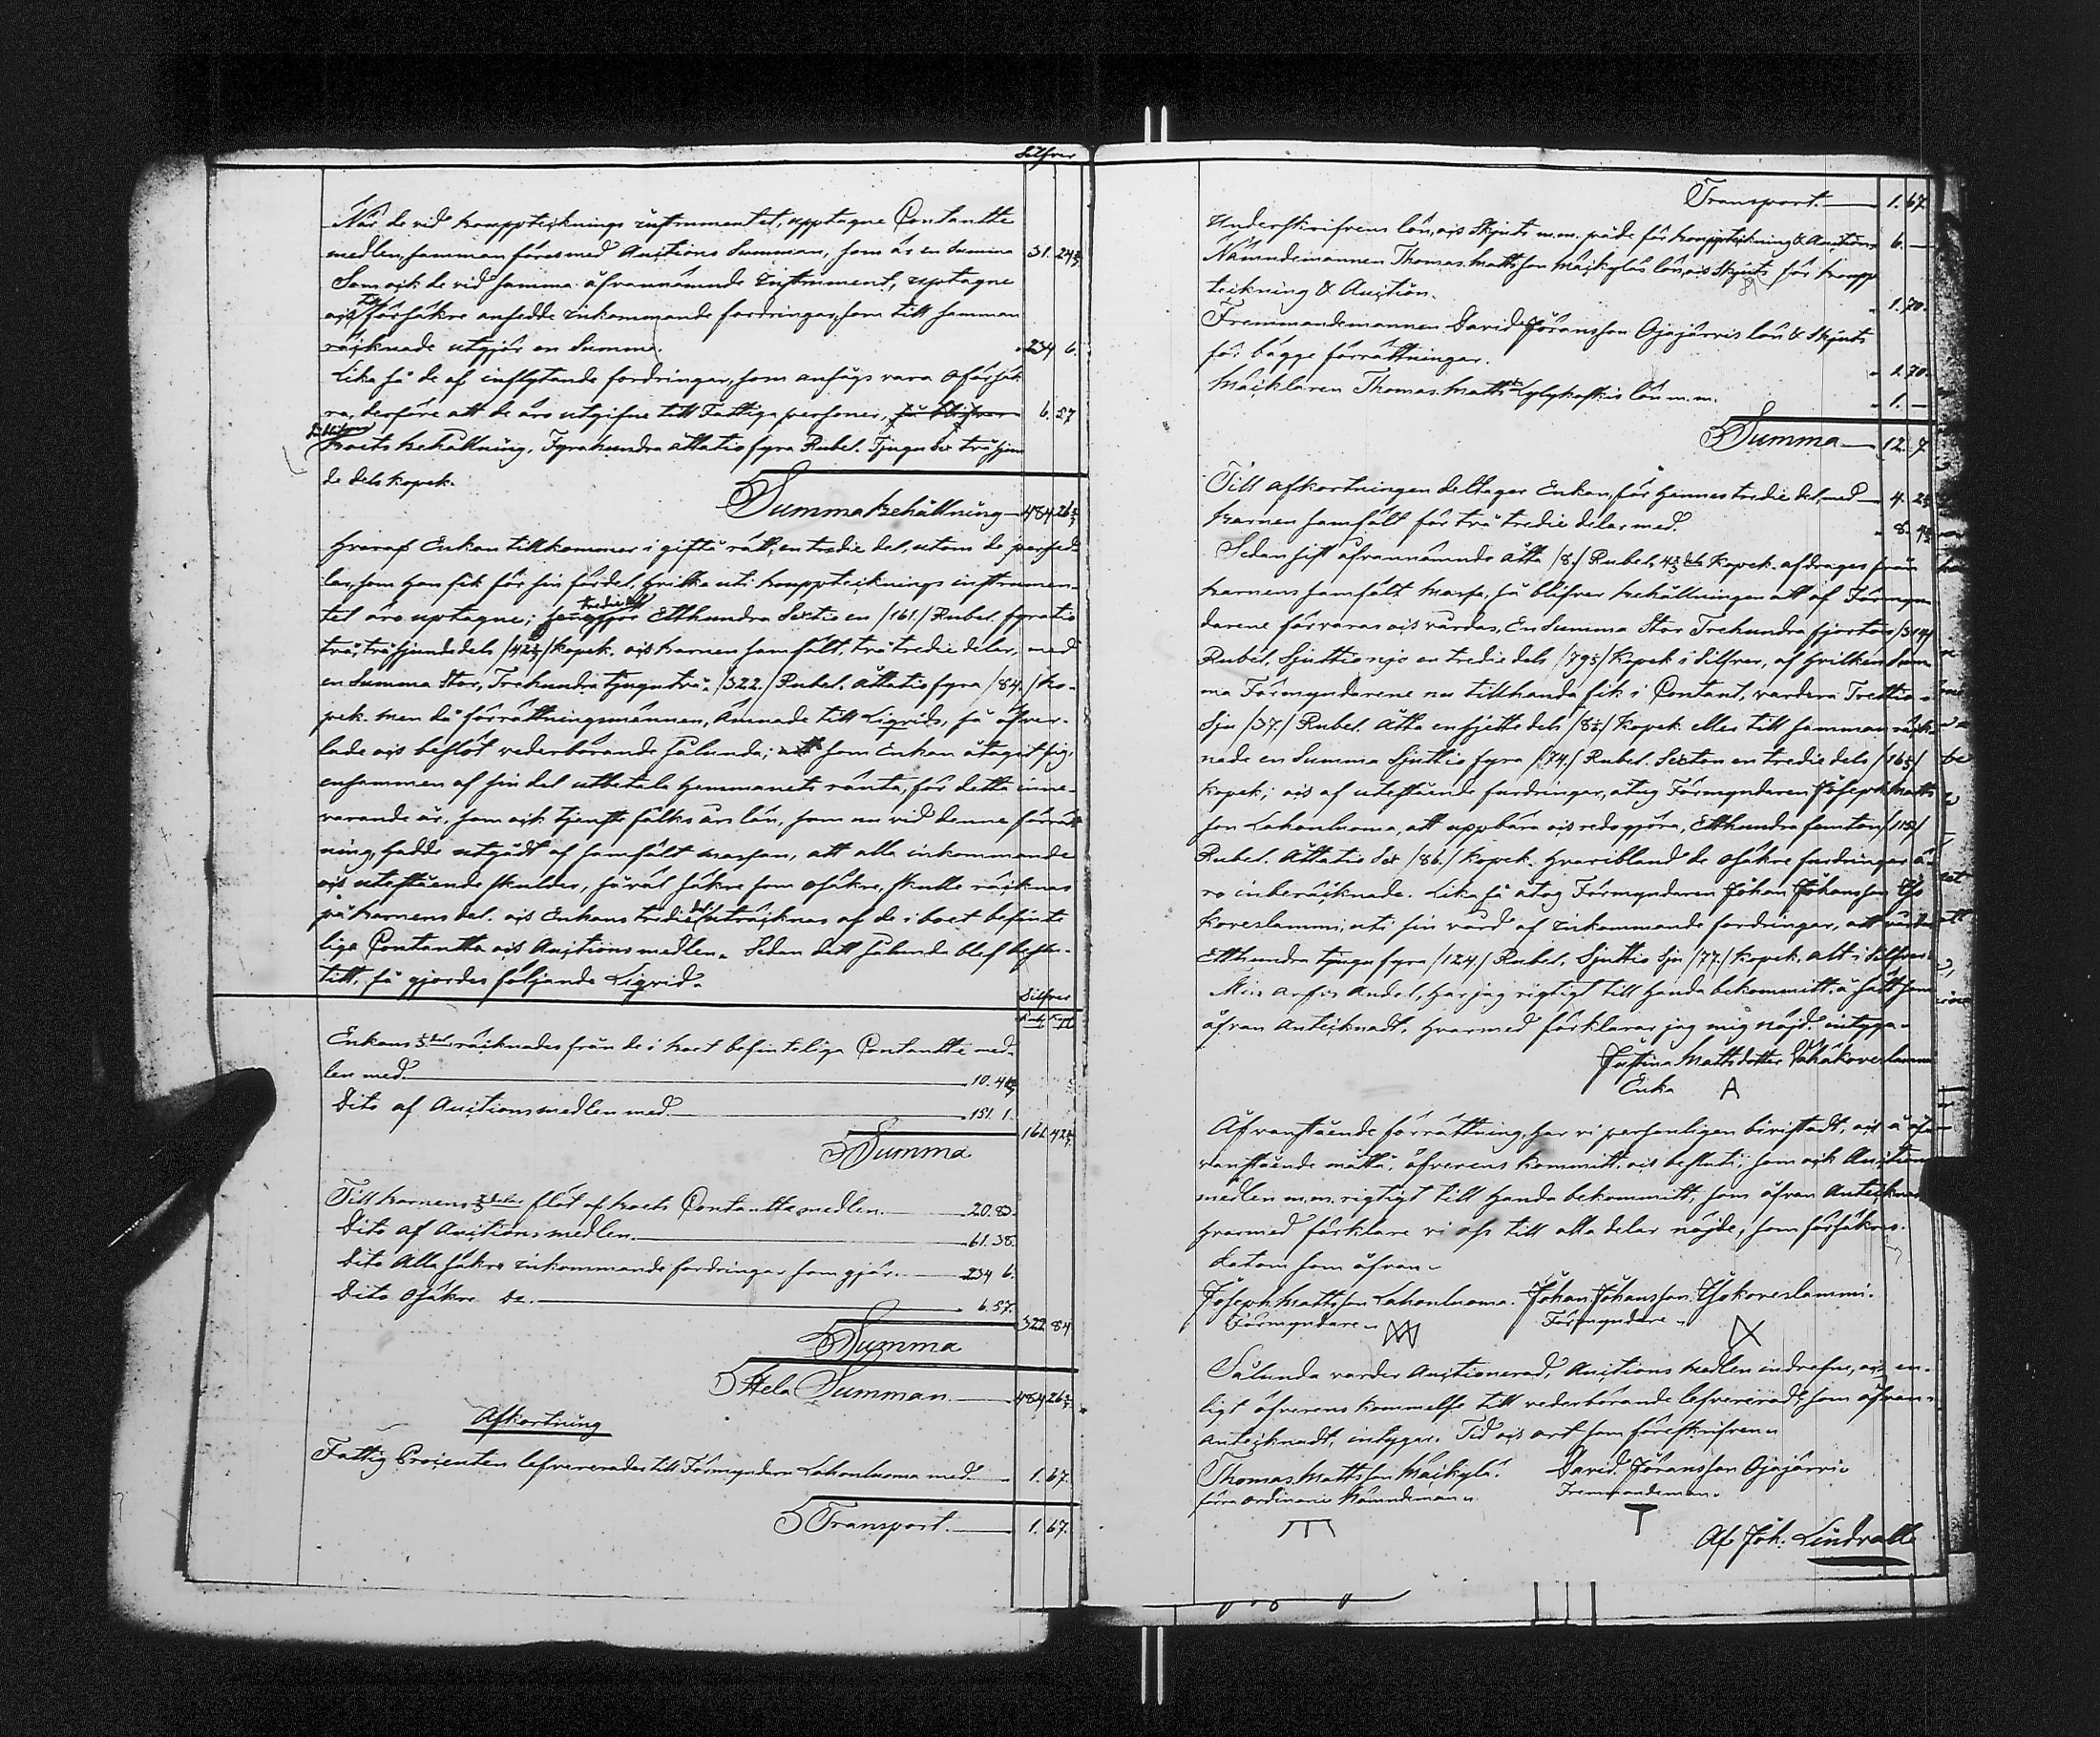 Silfver
När de vid bouppteknings instrumentet, upptagne Contantte
medlen, samman föres med Auctions Summan, som är en summa 31. 24 2/3
Som ock de vid samma åfvannämnde Instrument, uptagne
ock till försäkre ansedde inkommande fordringar, som till samman
räcknade utgjör en Summa. 234 6.
Lika så de af inflytande fordringar, som ansågs vara Oförsäk
ra, derföre att de äro utgifne till Fattiga personer, 6. 27
Boets behållning. Fyrahundra åttatio fyra Rubel. Tjugu sex två sjun
de dels kopek.
Summa behållning 484 26 2/7
Hvaraf Enkan tillkommer i giftå rätt, en tredie del, utom de persed
lar, som hon fik för sin fördel, hvilka uti boupptecknings instrumen-
tet äro uptagne; tredie del Etthundra Sextio en /161./ Rubel. fyratio
två, två sjundedels /42 2/7/ kopek. ock barnen samfält, två tredie delar, med
en Summa Stor, Trehundra tjugutvå. /322./ Rubel. åttatio fyra /84./ ko-
pek. men då förrättningsmännen, ämnade till Liqvid, så öfver-
lade ock beslöt vederbörande sålunda; att som Enkan åtagit sig,
ensammen af sin del utbetala hemmanets ränta, för detta inne-
varande år, som ock tjenste fålks års lön, som nu vid denne förrätt
ning, hadde utgådt af samfält massan, att alla inkommande
ock utestående skulder, såväl säkre som osäkre, skulle räcknas
på barnens del. ock Enkans tredie del uträcknas af de i boet befinte
liga Contantta ock Auctions medlen. Sedan dett sålunda blef beslu-
titt, så gjordes följande Liqvid.
Silfver
Rubl Kop
Enkans 1/3 del räcknades från de i boet befinteliga Contantte med-
len med 10. 41 2/7
Dito af Auctionsmedlen med 151. 1.
Summa 161. 42 2/7
Till barnens 2/3 delar flöt af boets Contantta medlen. 20. 83.
Dito af Auctionsmedlen. 61. 38.
Dito Alla säkre inkommande fordringar som gjör. 234 6.
Dito osäkre Do. 6. 57.
Summa 322 84
Hela Summan 484 26 2/7
Afkortning
Fattig Procenten lefvererades till Förmyndaren Lahonluoma med 1. 67.
Transport. 1. 67.
Transport. 1. 67.
Underskrifvens lön, ock Skjuts m.m. både för bouppteckning & Auction 6. —
Nämndemannen Thomas Mattsson Mäikyläs lön, ock Skjuts för boupp
teckning & Auction. 1. 70.
Fremmandemannen David Jöransson Ojajärvis lön & Skjuts
för bägge förrättningar. 1. 70.
Mäcklaren Thomas Matts Lylykoskis lön m.m. 1. —
Summa 12. 7.
Till afkortningen deltager Enkan, för Hennes tredie del, med 4. 2 1/3
barnen samfält för två tredie delar med. 8. 4 2/3
Sedan sist åfvannämnde åtta /8./ Rubel, 4 2/3 dels Kopek. afdrages från
barnens samfält massa, så blifver behållningen att af Förmyn
darene förvaras ock vårdas, En Summa Stor Trehundra fjorton /314/
Rubel. Sjuttio nije en tredie dels /79 1/3/ Kopek i Silfver, af hvilken Sum
ma Förmyndarene nu tillhanda fik i Contant, vardera Trettio
Sju /37./ Rubel. Åtta en sjette dels /8 1/6/ Kopek eller till samman räck
nade en Summa Sjuttio fyra /74./ Rubel. Sexton en tredie dels /16 1/3/
Kopek; ock af utestående fordringar, åtog Förmyndaren Joseph Matts
son Lahonluoma, att uppbära ock redogjöra, Etthundra femton /115/
Rubel. Åttatio Sex /86./ Kopek. hvaribland de osäkre fordringar ä-
ro inberäcknade. Lika så åtog Förmyndaren Johan Johansson Iso
koveslammi, uti sin vård af inkommande fordringar, att vårda
Etthundra tjugu fyra /124/ Rubel, Sjuttio Sju /77./ Kopek, alt i Silfver.
Min arfs Andel, har jag rigtigt till handa bekommitt, å sätt som
åfvan Antecknadt, hvarmed förklarar jag mig nöjd. intyga
Justina Mattsdotter Wähäkoveslammi
Enka A
Åfvanstående förrättning, har vi personligen bivistadt, ock å åf
vanstående måtta, öfverens kommitt, ock beslutit, som ock Auctions
medlen m.m. rigtigt till handa bekommitt, som åfvan Antecknadt
hvarmed förklare vi oss till alla delar nöjde, som försäkras.
datom som åfvan.
Joseph Mattsson Lahonluoma. Johan Johansson Isokoveslammi.
Förmyndare. Förmyndare.
Sålunda vorder Auctionerad, Auctions medlen indrefne, ock en-
ligt öfverens kommelse till vederbörande lefvereradt, som åfvan
antecknadt, intygar. Tid ock ort som föreskrifven.
Thomas Mattsson Mäikylä. David Jöransson Ojajärvi.
förra ordinarie Nämndeman. Fremmandeman.
Af Joh. Lindvall